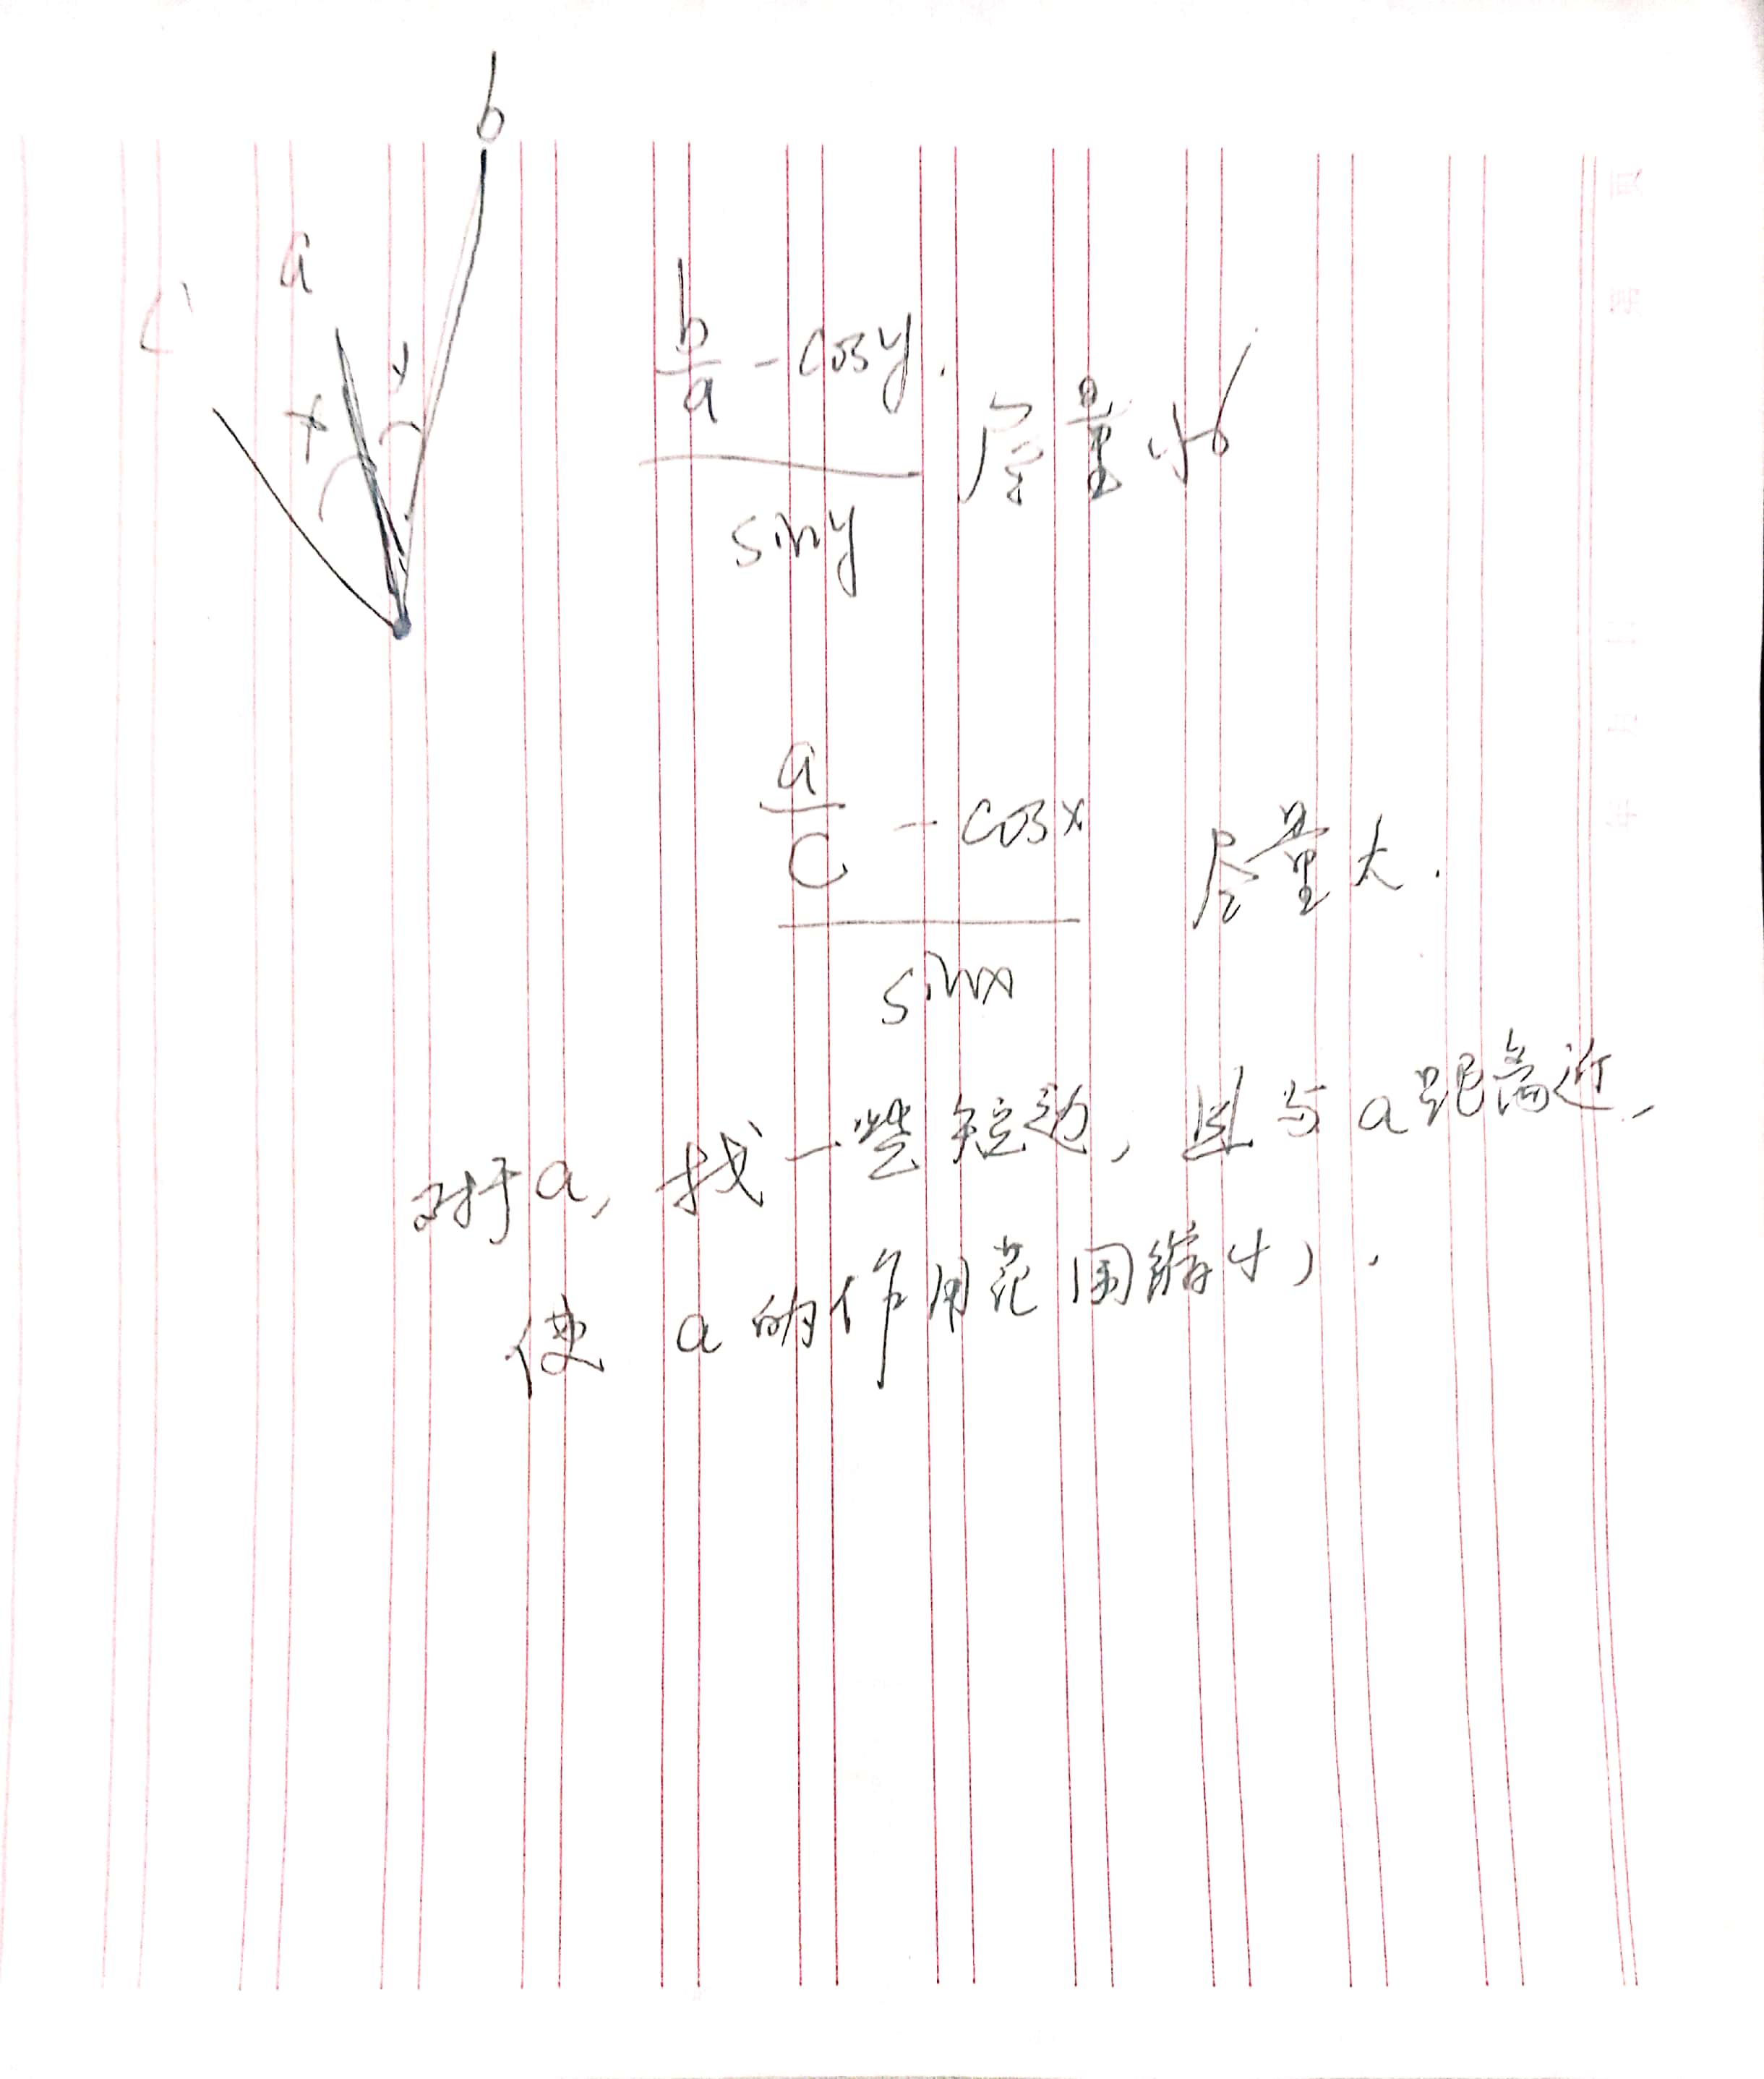 b
a
c
x y
b/a - cosy
siny
尽量小
a/c - cosx
sinx
尽量大.
对于a, 找一些短边, 且与a距离近,
使 a的作用范围缩小.